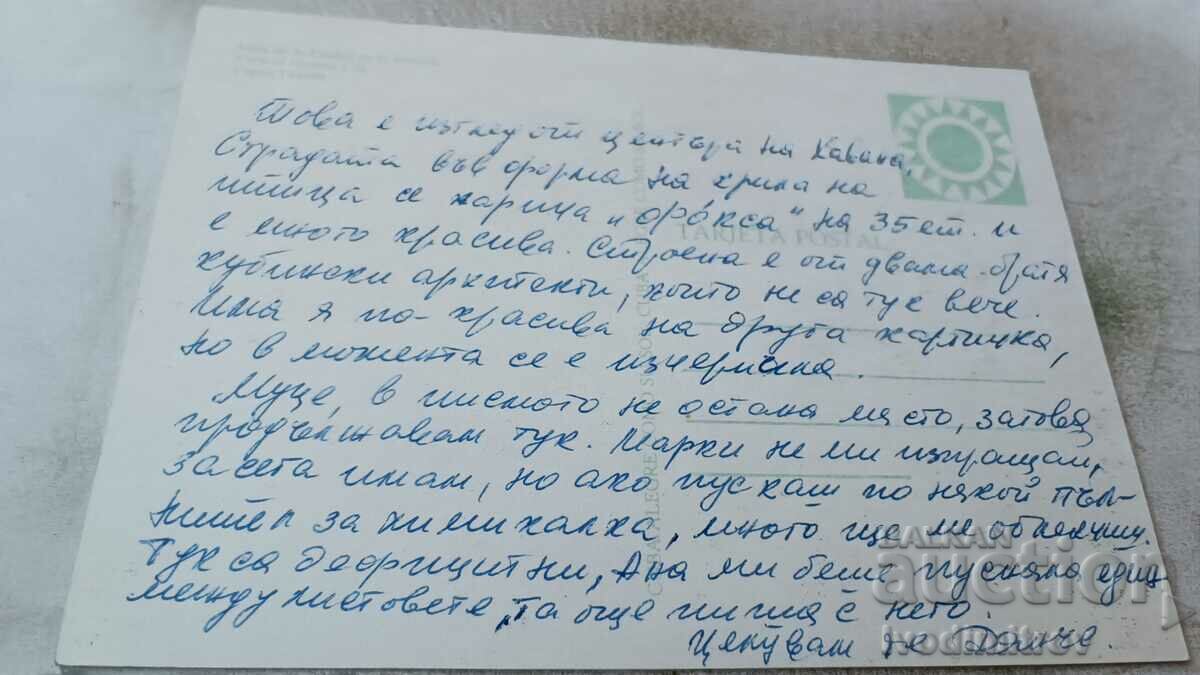 Това е изглед от центъра на Хавана,
Сградата във форма на крила на
птица се нарича „Фокса" на 35 ет. и
е много красива. Строена е от двама братя
кубински архитекти, които не са тук вече.
Има я по-красива на друга картичка,
но в момента се е изчерпила.
Муце, в писмото не остана място, затова
продължавам тук. Марки не ми изпращай,
засега имам, но ако пускаш по някой пъл-
нител за химикалка, много ще ме облекчиш.
Тук са дефицитни, Ана ми беше пуснала един
между листовете, та още пиша с него.
Целувам те Данче.
TARJETA POSTAL
BALKAN
auction
ivodimitrov